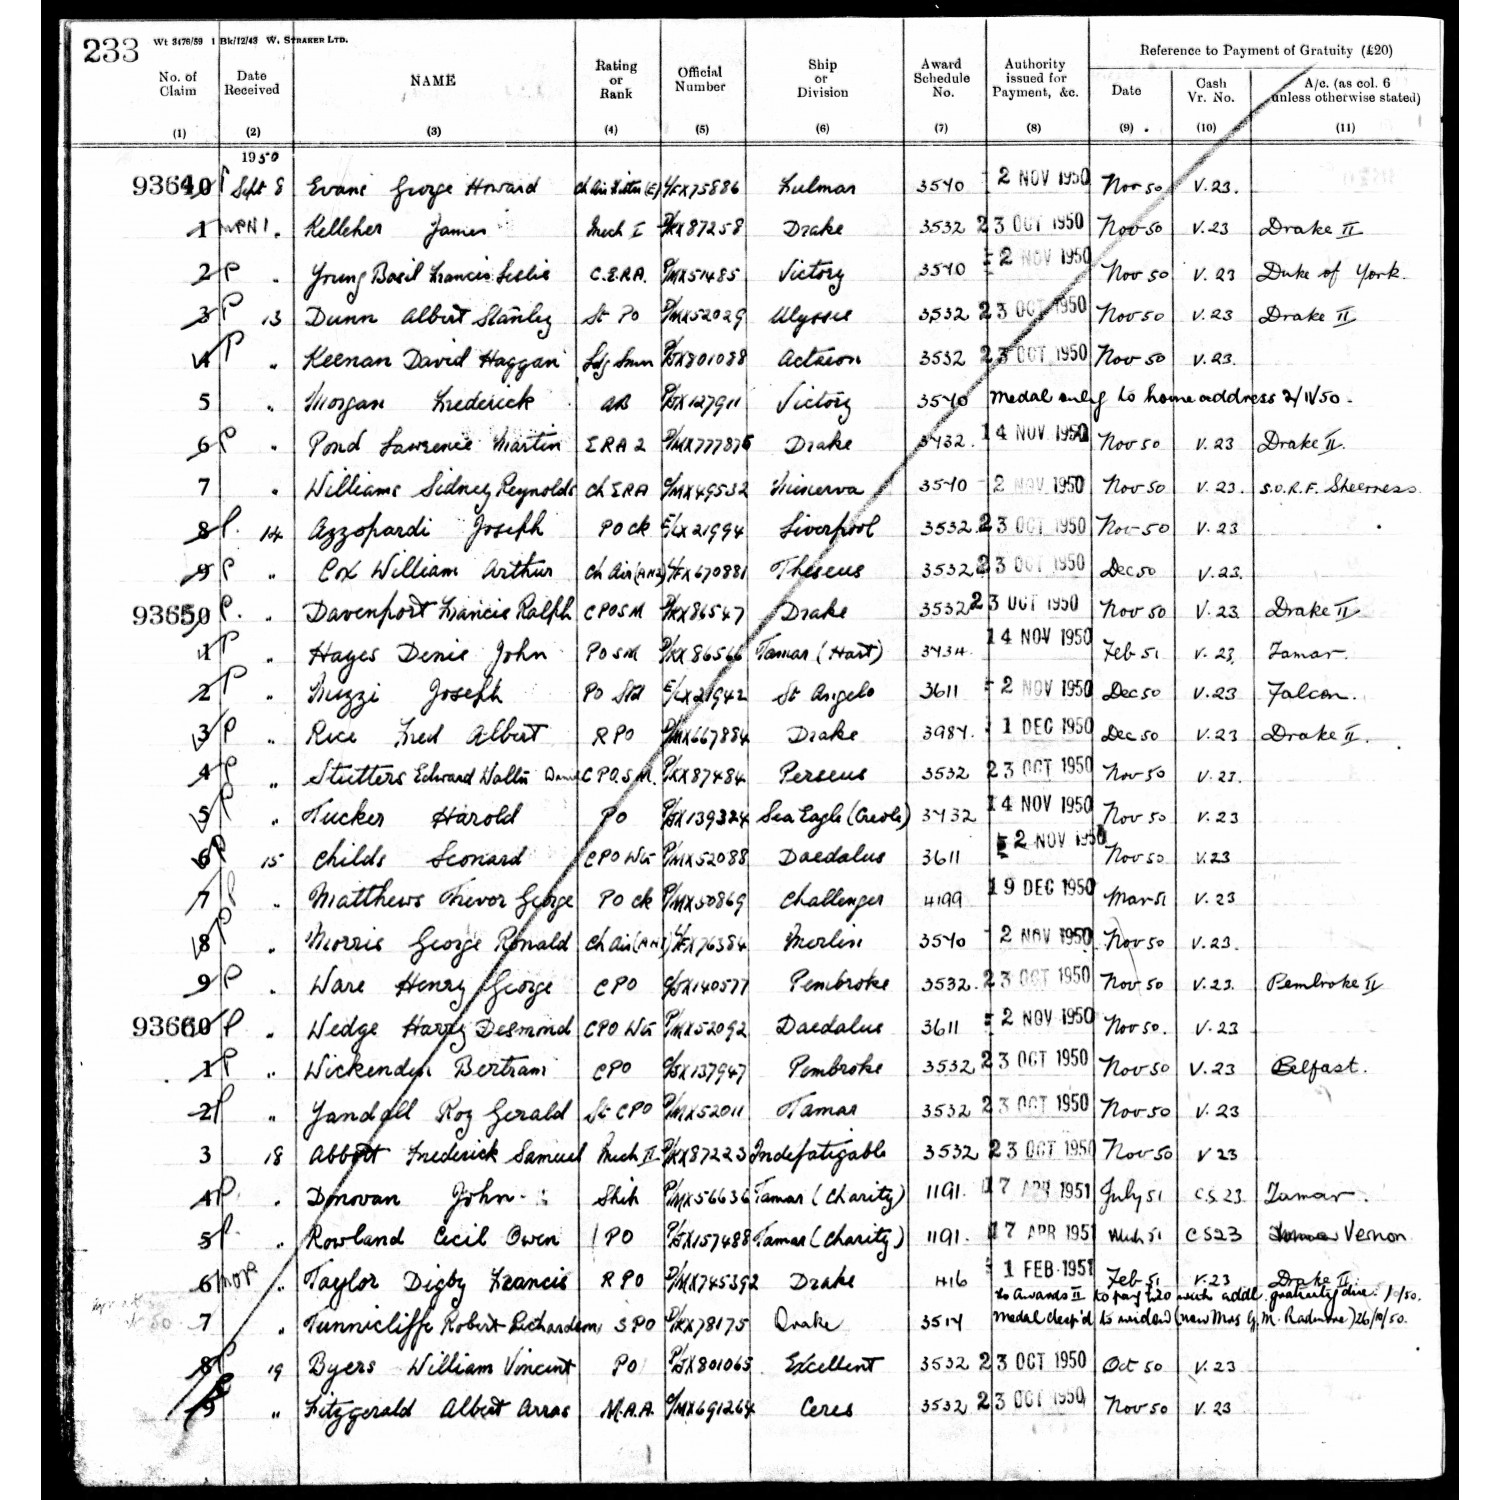 233 Wt 3476/59 1 Bk/12/43 W. STRAKER LTD.
Reference to Payment of Gratuity (£20)
No. of Claim Date Received NAME Rating or Rank Official Number Ship or Division Award Schedule No. Authority issued for Payment, &c. Date Cash Vr. No. A/c. (as col. 6 unless otherwise stated)
(1) (2) (3) (4) (5) (6) (7) (8) (9) (10) (11)
1950
93640 P Sept 8 Evans George Howard L/FX75886 Fulmar 3540 2 NOV 1950 Nov 50 V.23.
1 Kelleher James Mech I P/KX87258 Drake 3532 23 OCT 1950 Nov 50 V.23 Drake II
2 P " Young Basil Francis Leslie C.E.R.A. P/MX51485 Victory 3540 2 NOV 1950 Nov 50 V.23 Duke of York.
3 P 13 Dunn Albert Stanley St PO P/MX52029 Ulysses 3532 23 OCT 1950 Nov 50 V.23 Drake II
4 P " Keenan David Haggan Ldg Smn P/JX801088 Actaeon 3532 23 OCT 1950 Nov 50 V.23.
5 " Morgan Frederick AB P/JX127911 Victory 3540 Medal only to home address 2/11/50.
6 P " Pond Lawrence Martin ERA 2 P/MX777875 Drake 3432. 14 NOV 1950 Nov 50 V.23 Drake II.
7 " Williams Sidney Reynolds Ch ERA C/MX49532 Minerva 3540 2 NOV 1950 Nov 50 V.23. S.O.R.F. Sheerness
8 P. 14 Azzopardi Joseph PO Ck E/LX21994 Liverpool 3532 23 OCT 1950 Nov 50 V.23
9 P " Cox William Arthur Ch Air L/FX670881 Theseus 3532 23 OCT 1950 Dec 50 V.23.
93650 P. " Davenport Francis Ralph CPOSM P/KX86547 Drake 3532 23 OCT 1950 Nov 50 V.23 Drake II
1 P " Hayes Denis John PO SM P/KX86566 Tamar (Hart) 3434. 14 NOV 1950 Feb 51 V.23, Tamar.
2 P " Muzzi Joseph PO Std E/LX21942 St Angelo 3611 2 NOV 1950 Dec 50 V.23 Falcon.
3 P " Rice Fred Albert RPO P/MX667884 Drake 3984. 1 DEC 1950 Dec 50 V.23 Drake II.
4 P " Stutters Edward Walter CPO.S.M. P/KX87484 Perseus 3532 23 OCT 1950 Nov 50 V.23.
5 P " Tucker Harold PO P/JX139324 Sea Eagle (Creole) 3432 14 NOV 1950 Nov 50 V.23
6 P 15 Childs Leonard CPO Wtr P/MX52088 Daedalus 3611 2 NOV 1950 Nov 50 V.23
7 P " Matthews Trevor George PO Ck P/MX50869 Challenger 4199 19 DEC 1950 Mar 51 V.23
8 P " Morris George Ronald Ch Air L/FX76384 Merlin 3540 2 NOV 1950 Nov 50 V.23.
9 P " Ware Henry George CPO C/JX140577 Pembroke 3532. 23 OCT 1950 Nov 50 V.23. Pembroke II
93660 P " Wedge Harry Desmond CPO Wtr P/MX52092 Daedalus 3611 2 NOV 1950 Nov 50. V.23
1 P " Wickenden Bertram CPO C/JX137947 Pembroke 3532 23 OCT 1950 Nov 50 V.23 Belfast.
2 P " Yandell Roy Gerald St CPO P/MX52011 Tamar 3532 23 OCT 1950 Nov 50 V.23
3 18 Abbott Frederick Samuel Mech II P/KX87223 Indefatigable 3532 23 OCT 1950 Nov 50 V 23
4 P. " Donovan John Shth P/MX56636 Tamar (Charity) 1191. 17 APR 1951 July 51 C.S.23 Tamar.
5 P. " Rowland Cecil Owen PO P/JX157488 Tamar (Charity) 1191. 17 APR 1951 Mch 51 CS23 Vernon
6 " Taylor Digby Francis RPO P/MX745392 Drake 416 1 FEB 1951 Feb 51 V.23 Drake II.
to Awards II to pay £20 with addl. gratuity due. 10/50.
7 " Tunnicliffe Robert Richardson SPO P/KX78175 Drake 3514 Medal desp'd to widow (now Mrs G. M. Radmore) 26/10/50.
8 P 19 Byers William Vincent PO P/JX801065 Excellent 3532 23 OCT 1950 Oct 50 V.23
9 P " Fitzgerald Albert Arras M.A.A. C/MX691264 Ceres 3532 23 OCT 1950 Nov 50 V.23